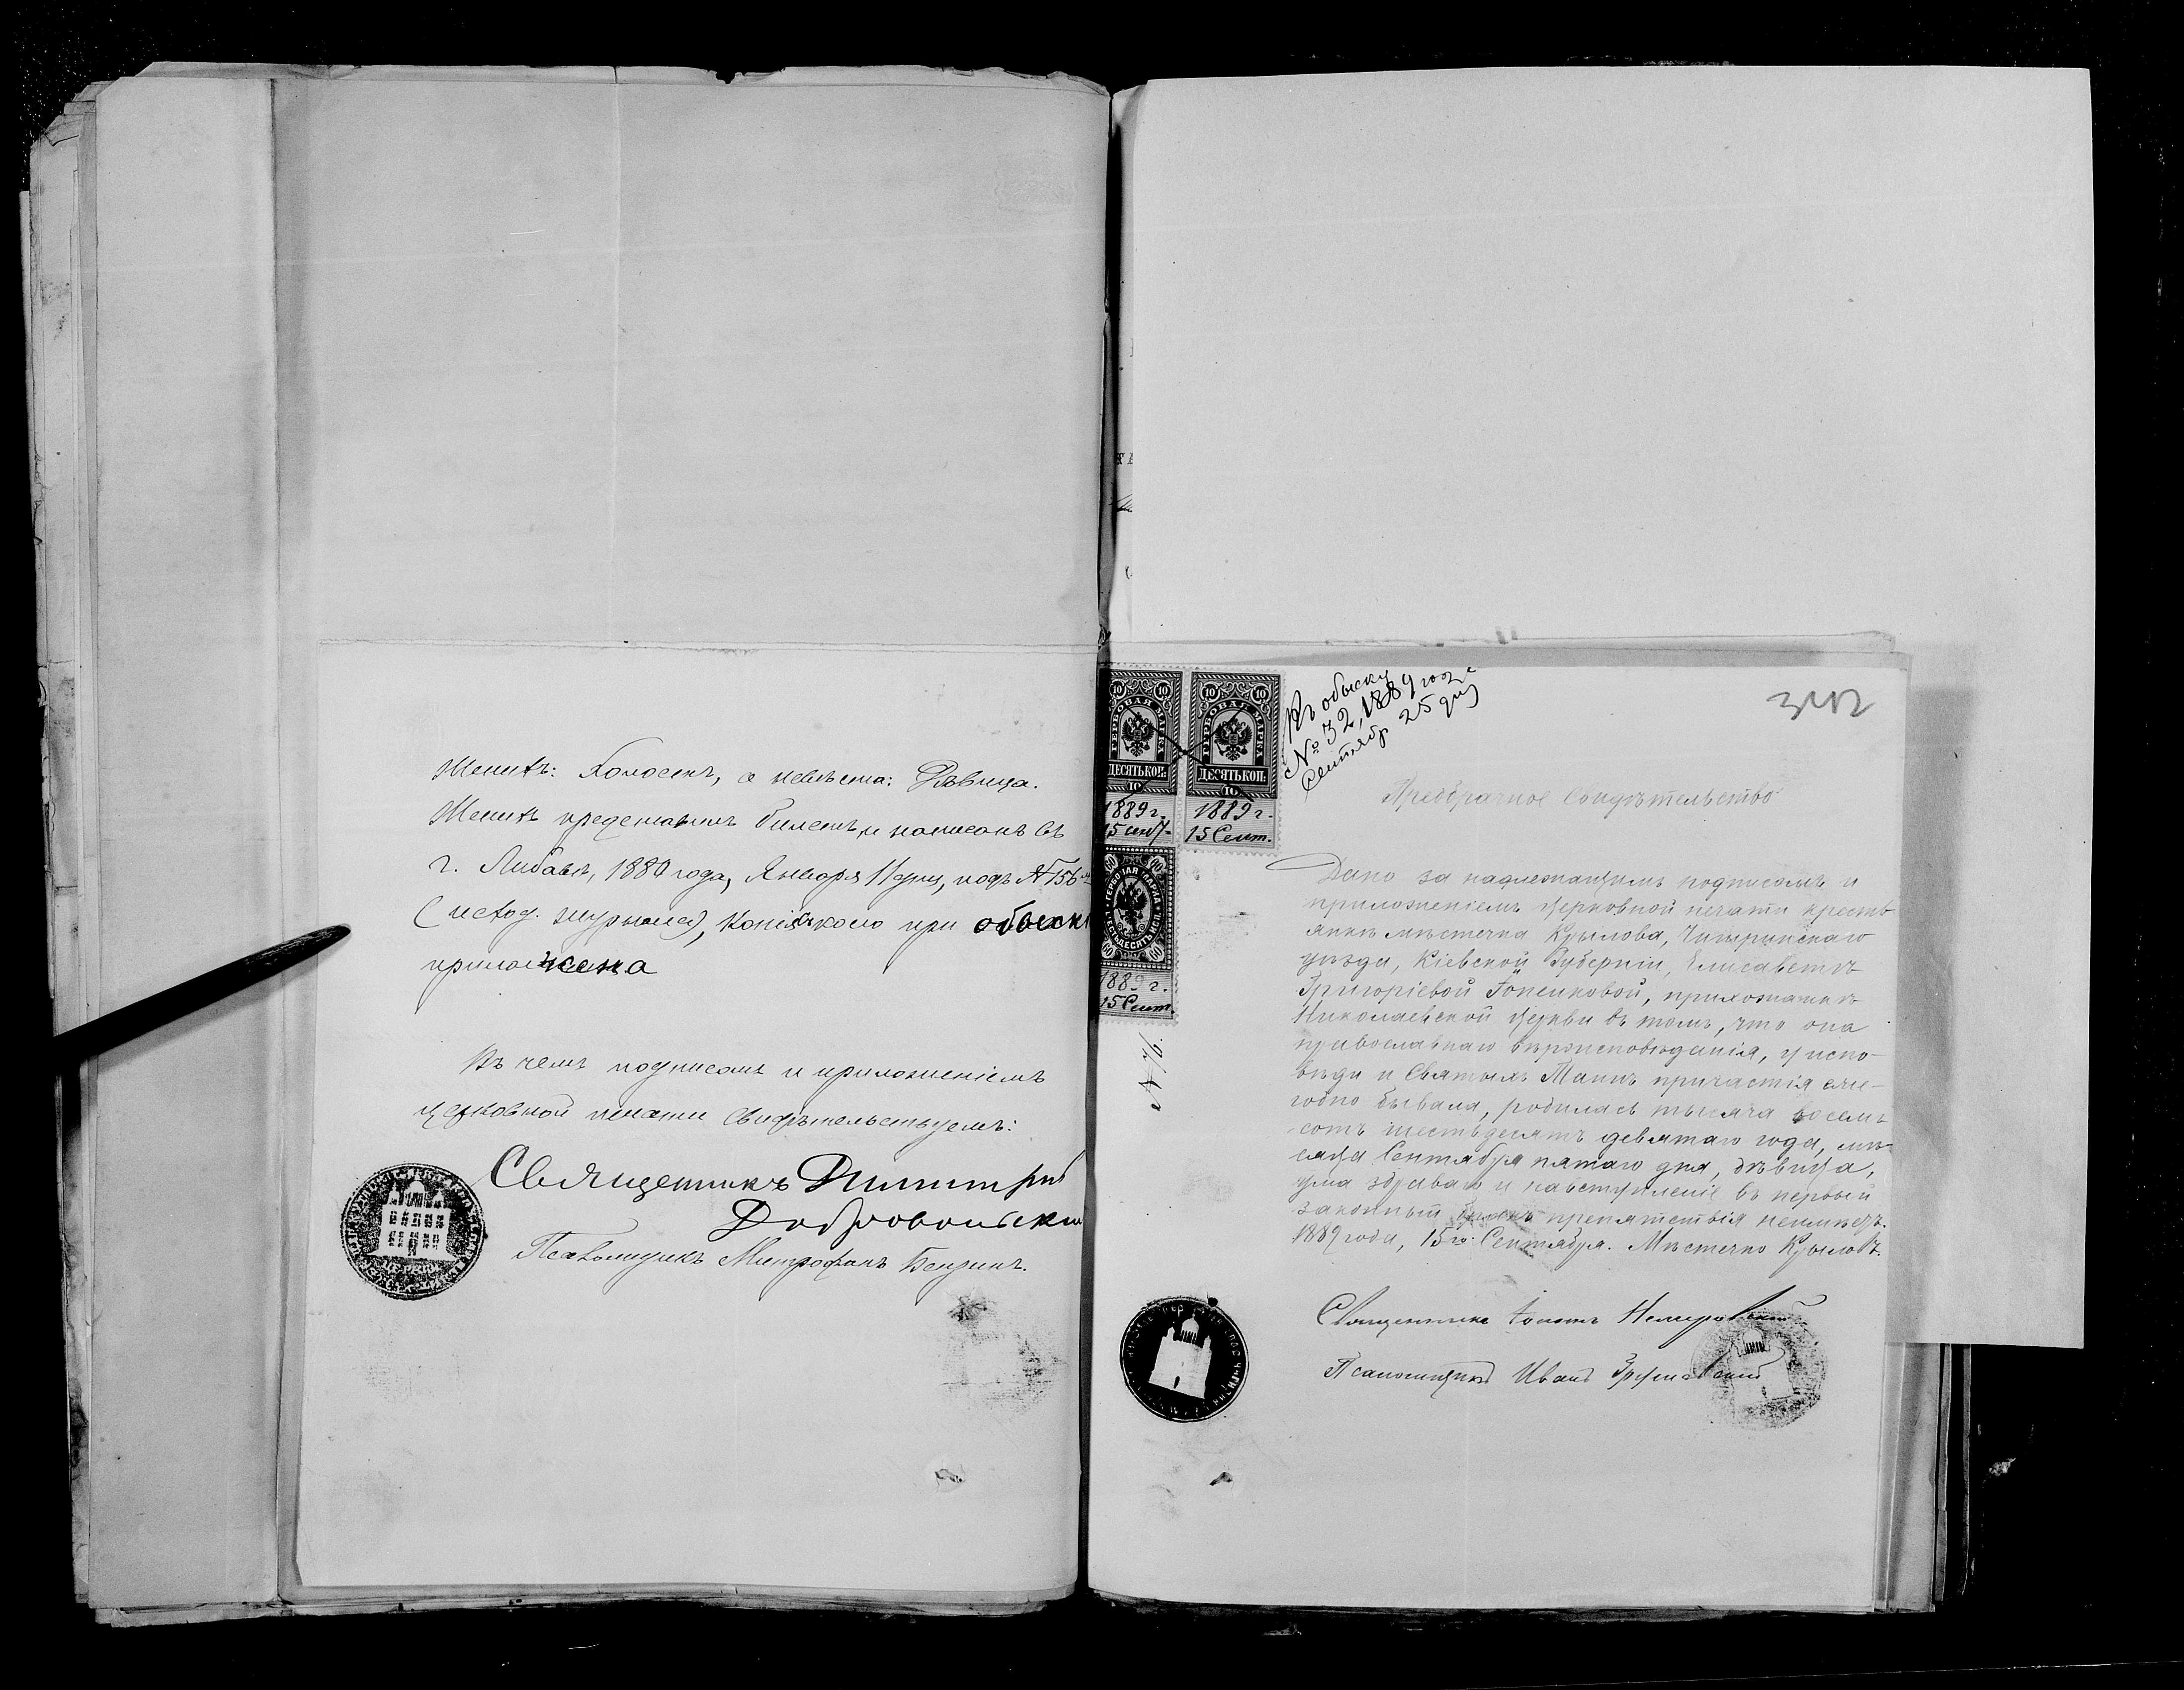 Женихъ: Холостъ, а невѣста: Дѣвица.
Женихъ представилъ билетъ, и написанъ въ
г. Либавѣ, 1880 года, Января 11 дня, подъ №156
(исход. журнала), копія коего при обыскѣ
приложена
Въ чемъ подписомъ и приложеніемъ
церковной печати свидѣтельствуемъ:
Священникъ Димитрій
Добровольскій
Псаломщикъ Митрофанъ
ЦЕРКВИ
ГЕРБОВАЯ МАРКА
ДЕСЯТЬ КОП.
10
1889 г.
15 Сент.
ГЕРБОВАЯ МАРКА
ДЕСЯТЬ КОП.
10
1889 г.
15 Сент.
ГЕРБОВАЯ МАРКА
ШЕСТЬДЕСЯТЪ КОП.
60
1889 г.
15 Сент.
№ 76.
Къ обыску
№ 32, 1889 года
Сентябр 25 дня
Предбрачное Свидѣтельство
Дано за надлежащимъ подписомъ и
приложеніемъ церковной печати кресть-
янкѣ мѣстечка Крылова, Чигиринскаго
уѣзда, Кіевской Губерніи, Елисаветѣ
Григоріевой Гопенковой, прихожанкѣ
Николаевской церкви въ томъ, что она
православнаго вѣроисповѣданія, у испо-
вѣди и Святыхъ Таинъ причастія еже-
годно бывала, родилась тысяча восемь-
сотъ шестьдесятъ девятаго года, мѣ-
сяца Сентября пятаго дня, дѣвица,
ума здраваго и на вступленіе въ первый
законный бракъ препятствія неимѣетъ.
1889 года, 15го Сентября. Мѣстечко Крыловъ.
Священникъ Немировскій
Псаломщикъ Иванъ